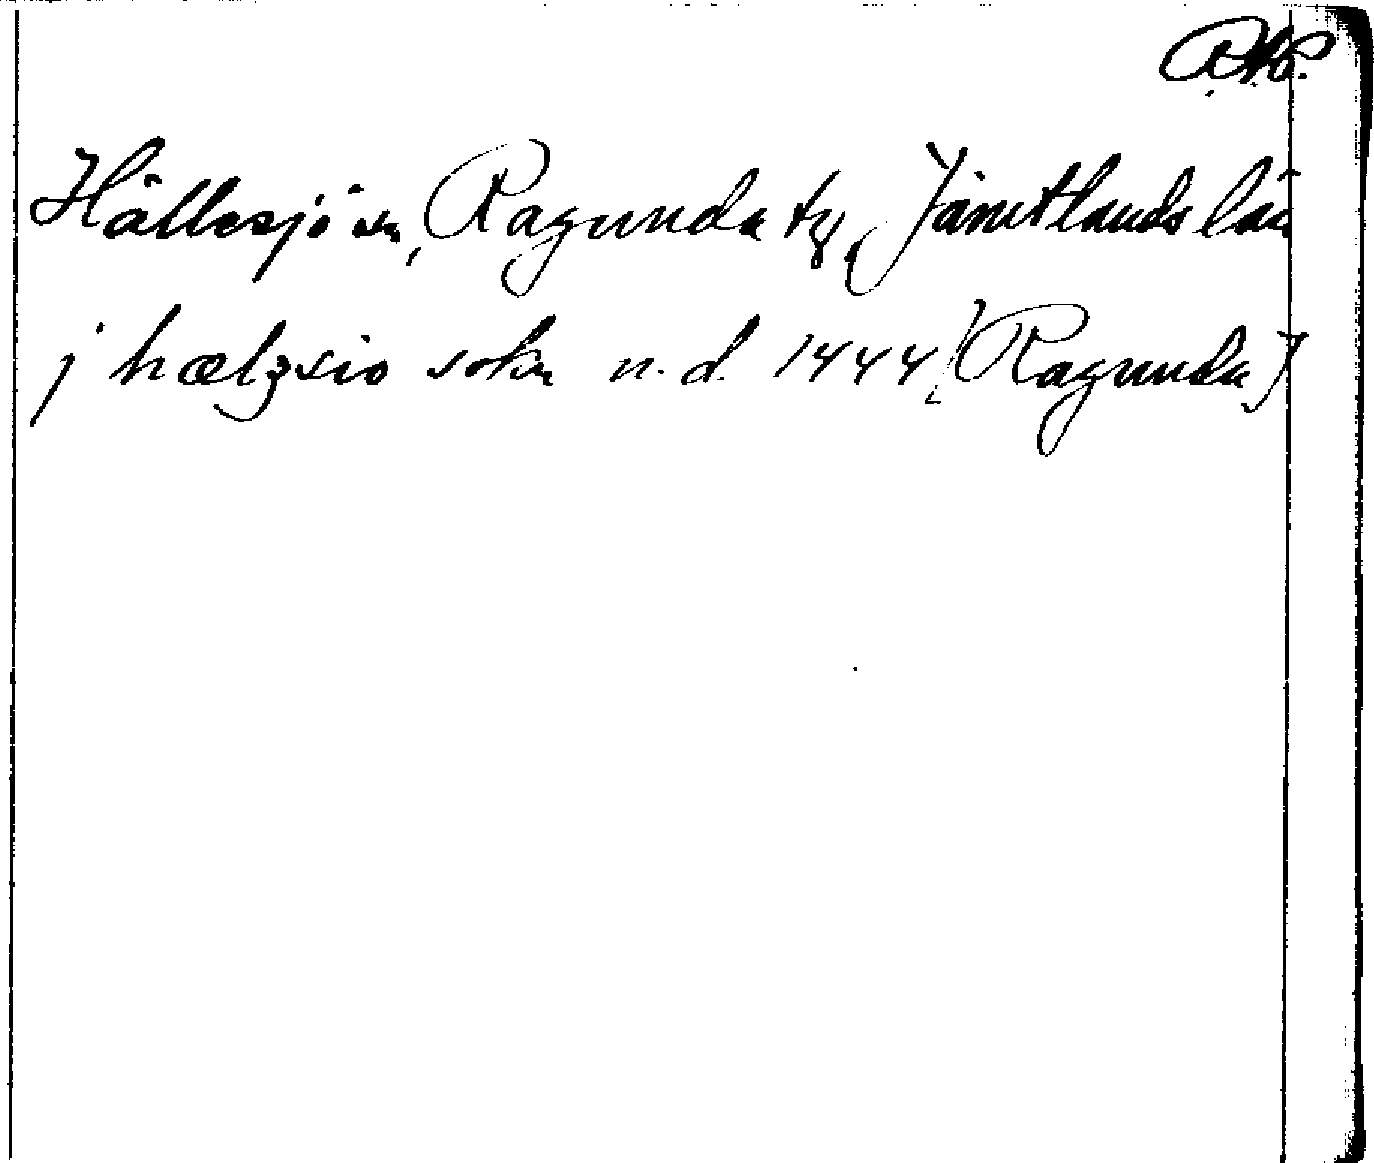 RAP.
Hällesjö sn, Ragunda tg, Jämtlands län
j hælgsio sokn n.d. 1444 (Ragunda)